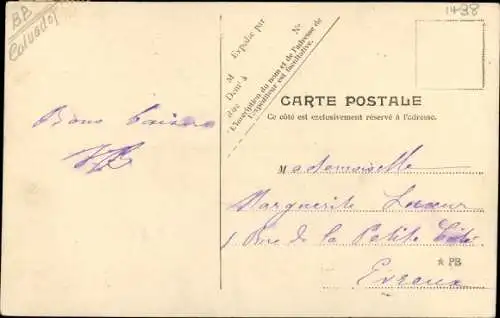 BB
Calvados
1438
M
Expédié par
Demt à
rue
N°
L'inscription du nom et de l'adresse de
l'expéditeur est facultative.
CARTE POSTALE
Ce côté est exclusivement réservé à l'adresse.
Bons baisers
Mademoiselle
Marguerite
1 Rue de la Petite Cité
★ PB
Evreux